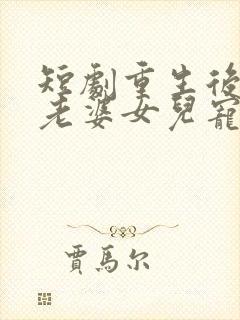 短劇重生後
老婆女兒寵
賈馬尔